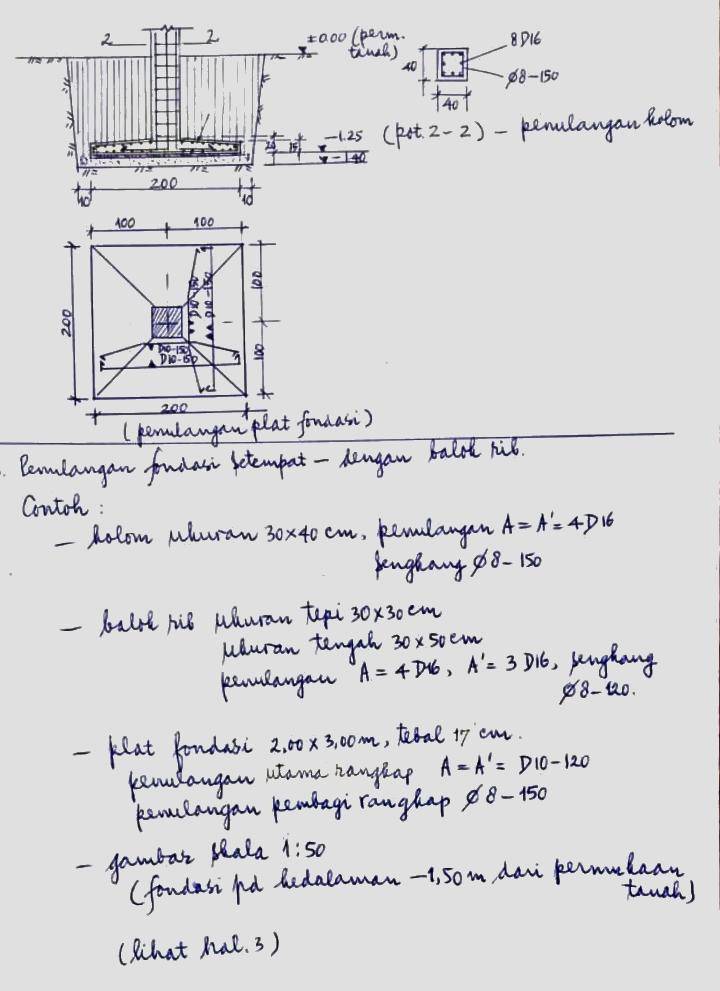 2
2
±0.00 (perm. tanah)
8D16
40
Ø8-150
40
(pot. 2-2) - penulangan kolom
-1.25
15
-1.40
200
10
10
100
100
200
D10-150
D10-150
100
100
D10-150
D10-150
200
(penulangan plat fondasi)
Penulangan fondasi setempat - dengan balok rib.
Contoh :
- kolom ukuran 30x40 cm, penulangan A = A' = 4D16
sengkang Ø8-150
- balok rib ukuran tepi 30x30 cm
ukuran tengah 30x50 cm
penulangan A = 4D16, A' = 3D16, sengkang
Ø8-120.
- plat fondasi 2,00 x 3,00 m, tebal 17 cm.
penulangan utama rangkap A = A' = D10-120
penulangan pembagi rangkap Ø8-150
- gambar skala 1:50
(fondasi pd kedalaman -1,50 m dari permukaan
tanah)
(lihat hal. 3)